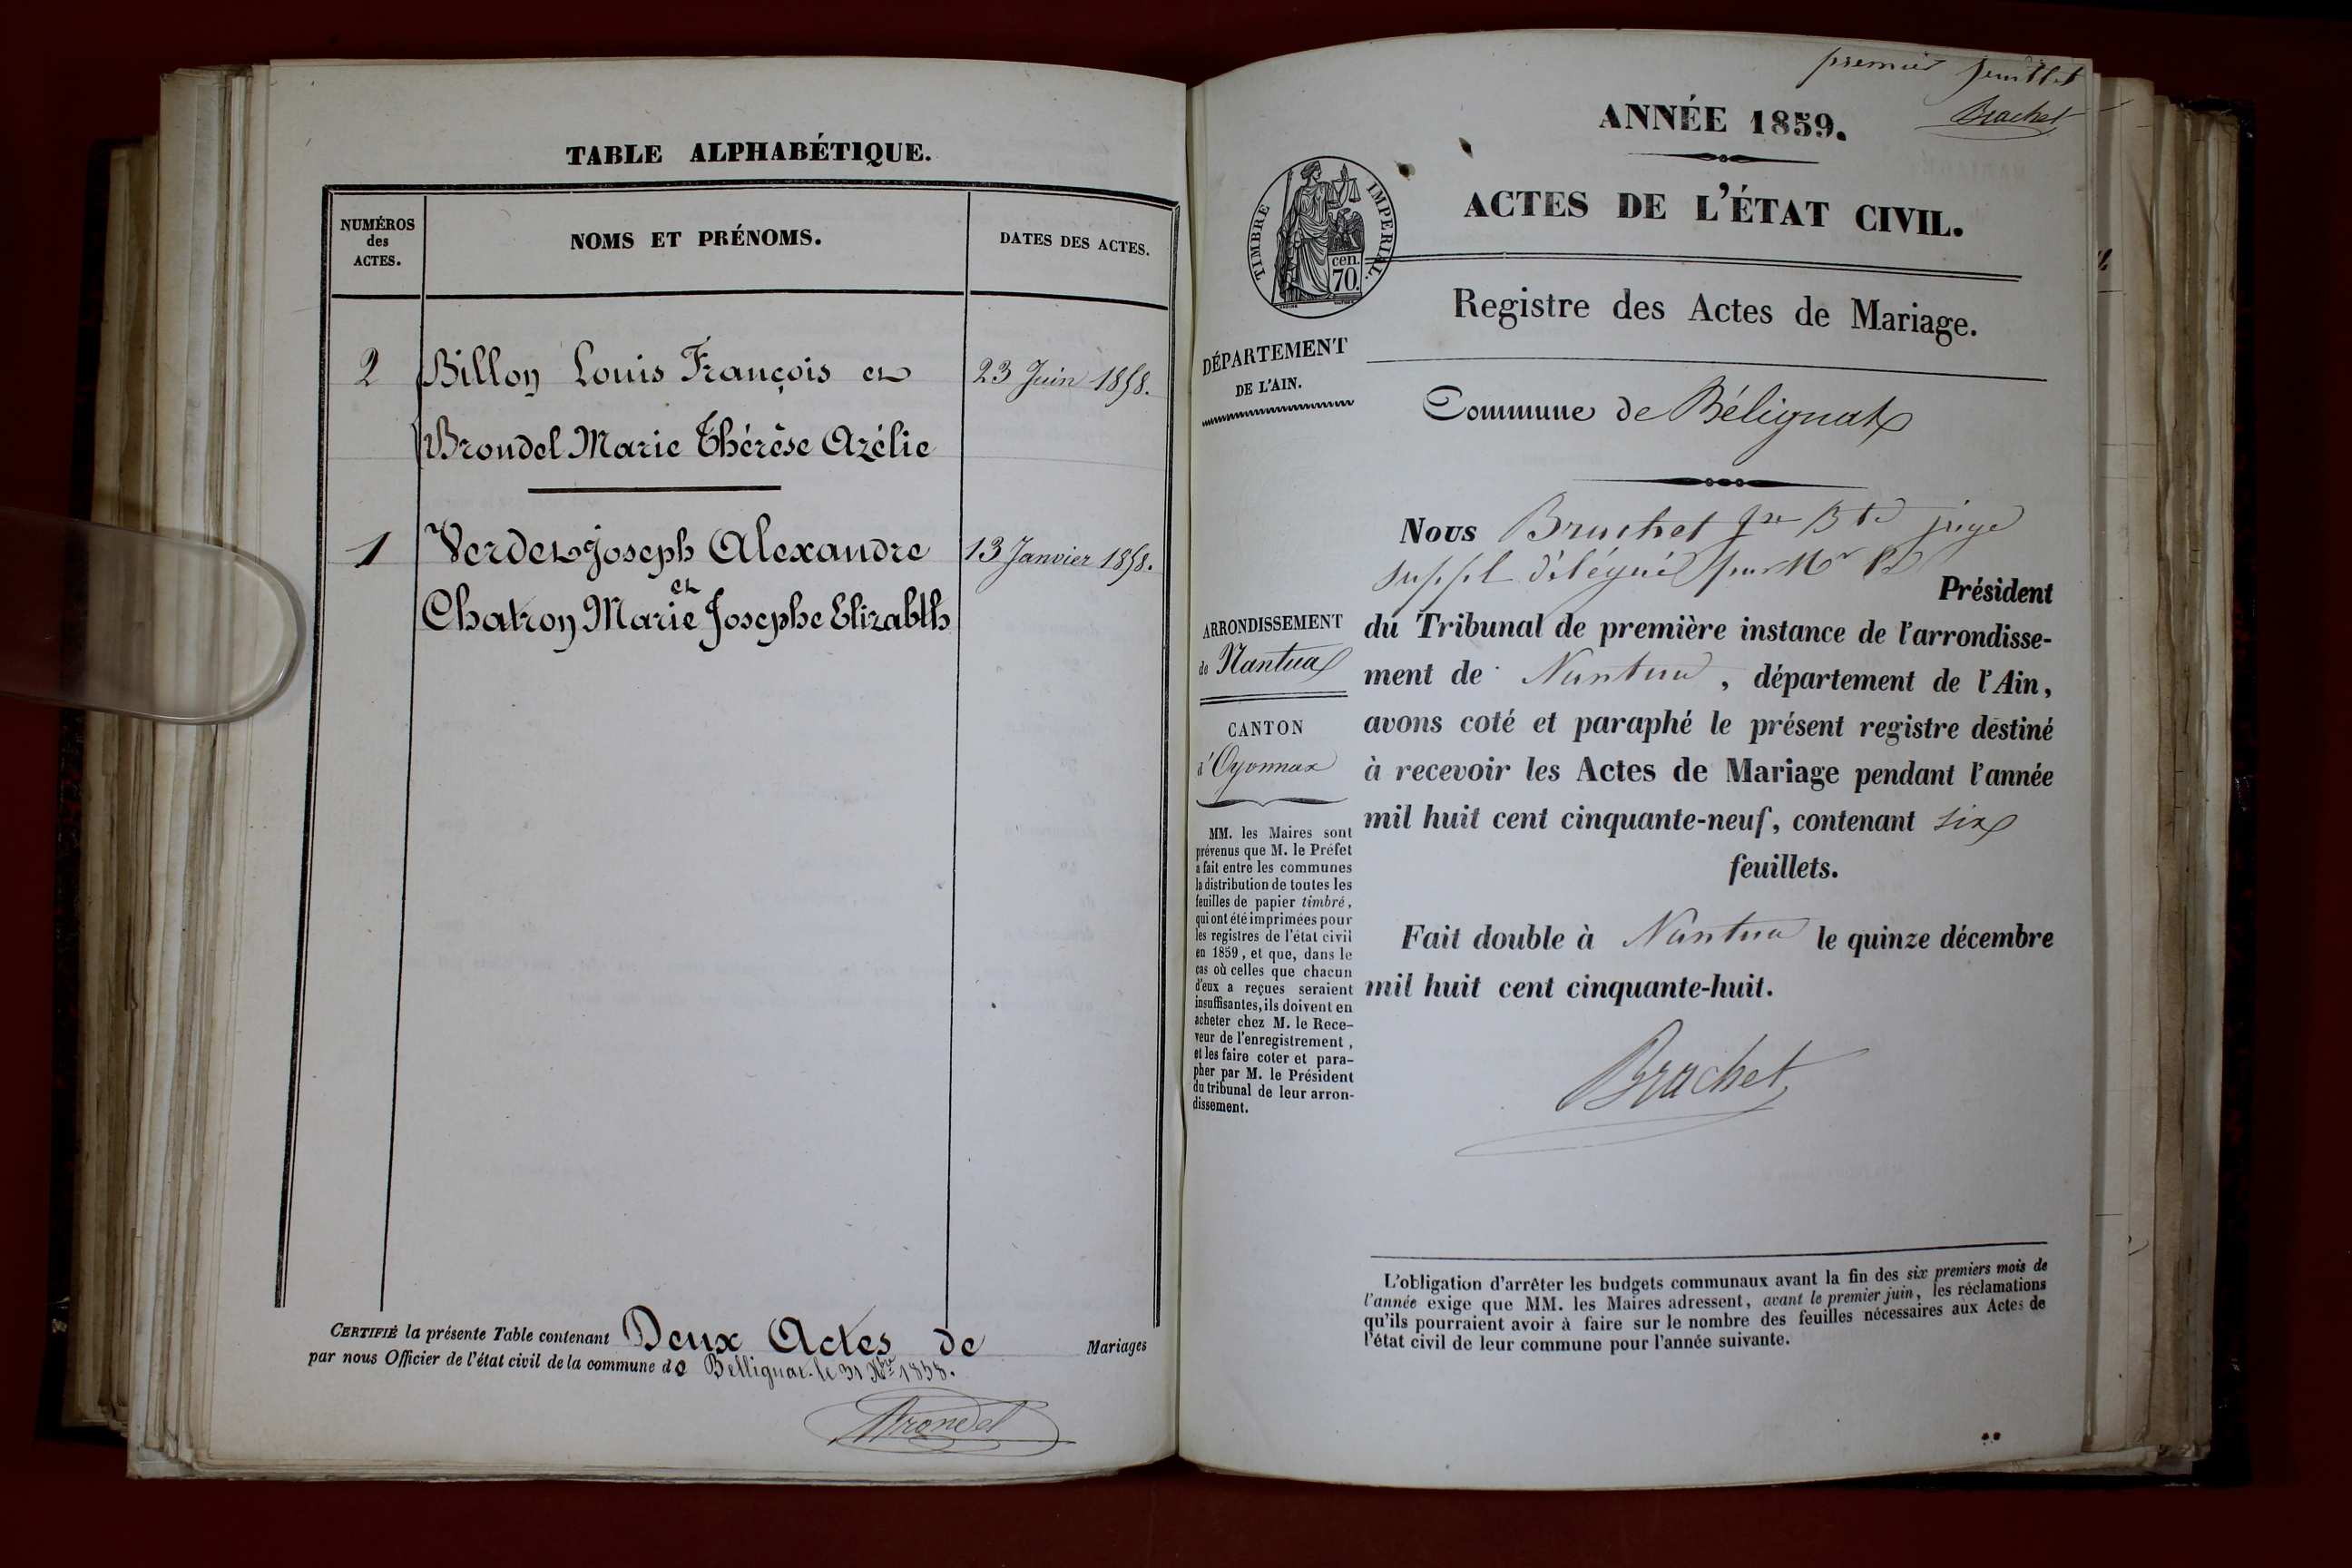 TABLE ALPHABÉTIQUE.
NUMÉROS
des
ACTES.
NOMS ET PRÉNOMS.
DATES DES ACTES.
2 Billon Louis François et 23 Juin 1858.
Brondel Marie Thérèse Azélie
1 Verdet Joseph Alexandre 13 Janvier 1858.
et
Chatron Marie Josephe Elizabth
CERTIFIÉ la présente Table contenant Deux Actes de Mariages
par nous Officier de l'état civil de la commune de Bellignat. le 31 Xbre 1858.
Brondel
premier feuillet
Brachet
ANNÉE 1859.
ACTES DE L'ÉTAT CIVIL.
TIMBRE IMPERIAL.
cen.
70.
Registre des Actes de Mariage.
DÉPARTEMENT
DE L'AIN.
Commune de Bélignat
Nous Brachet jn Bte juge
suppl délégué par Mr le Président
du Tribunal de première instance de l'arrondisse-
ment de Nantua, département de l'Ain,
avons coté et paraphé le présent registre destiné
à recevoir les Actes de Mariage pendant l'année
mil huit cent cinquante-neuf, contenant six
feuillets.
Fait double à Nantua le quinze décembre
mil huit cent cinquante-huit.
Brachet
ARRONDISSEMENT
de Nantua
CANTON
d'Oyonnax
MM. les Maires sont
prévenus que M. le Préfet
a fait entre les communes
la distribution de toutes les
feuilles de papier timbré,
qui ont été imprimées pour
les registres de l'état civil
en 1859, et que, dans le
cas où celles que chacun
d'eux a reçues seraient
insuffisantes, ils doivent en
acheter chez M. le Rece-
veur de l'enregistrement,
et les faire coter et para-
pher par M. le Président
du tribunal de leur arron-
dissement.
L'obligation d'arrêter les budgets communaux avant la fin des six premiers mois de
l'année exige que MM. les Maires adressent, avant le premier juin, les réclamations
qu'ils pourraient avoir à faire sur le nombre des feuilles nécessaires aux Actes de
l'état civil de leur commune pour l'année suivante.